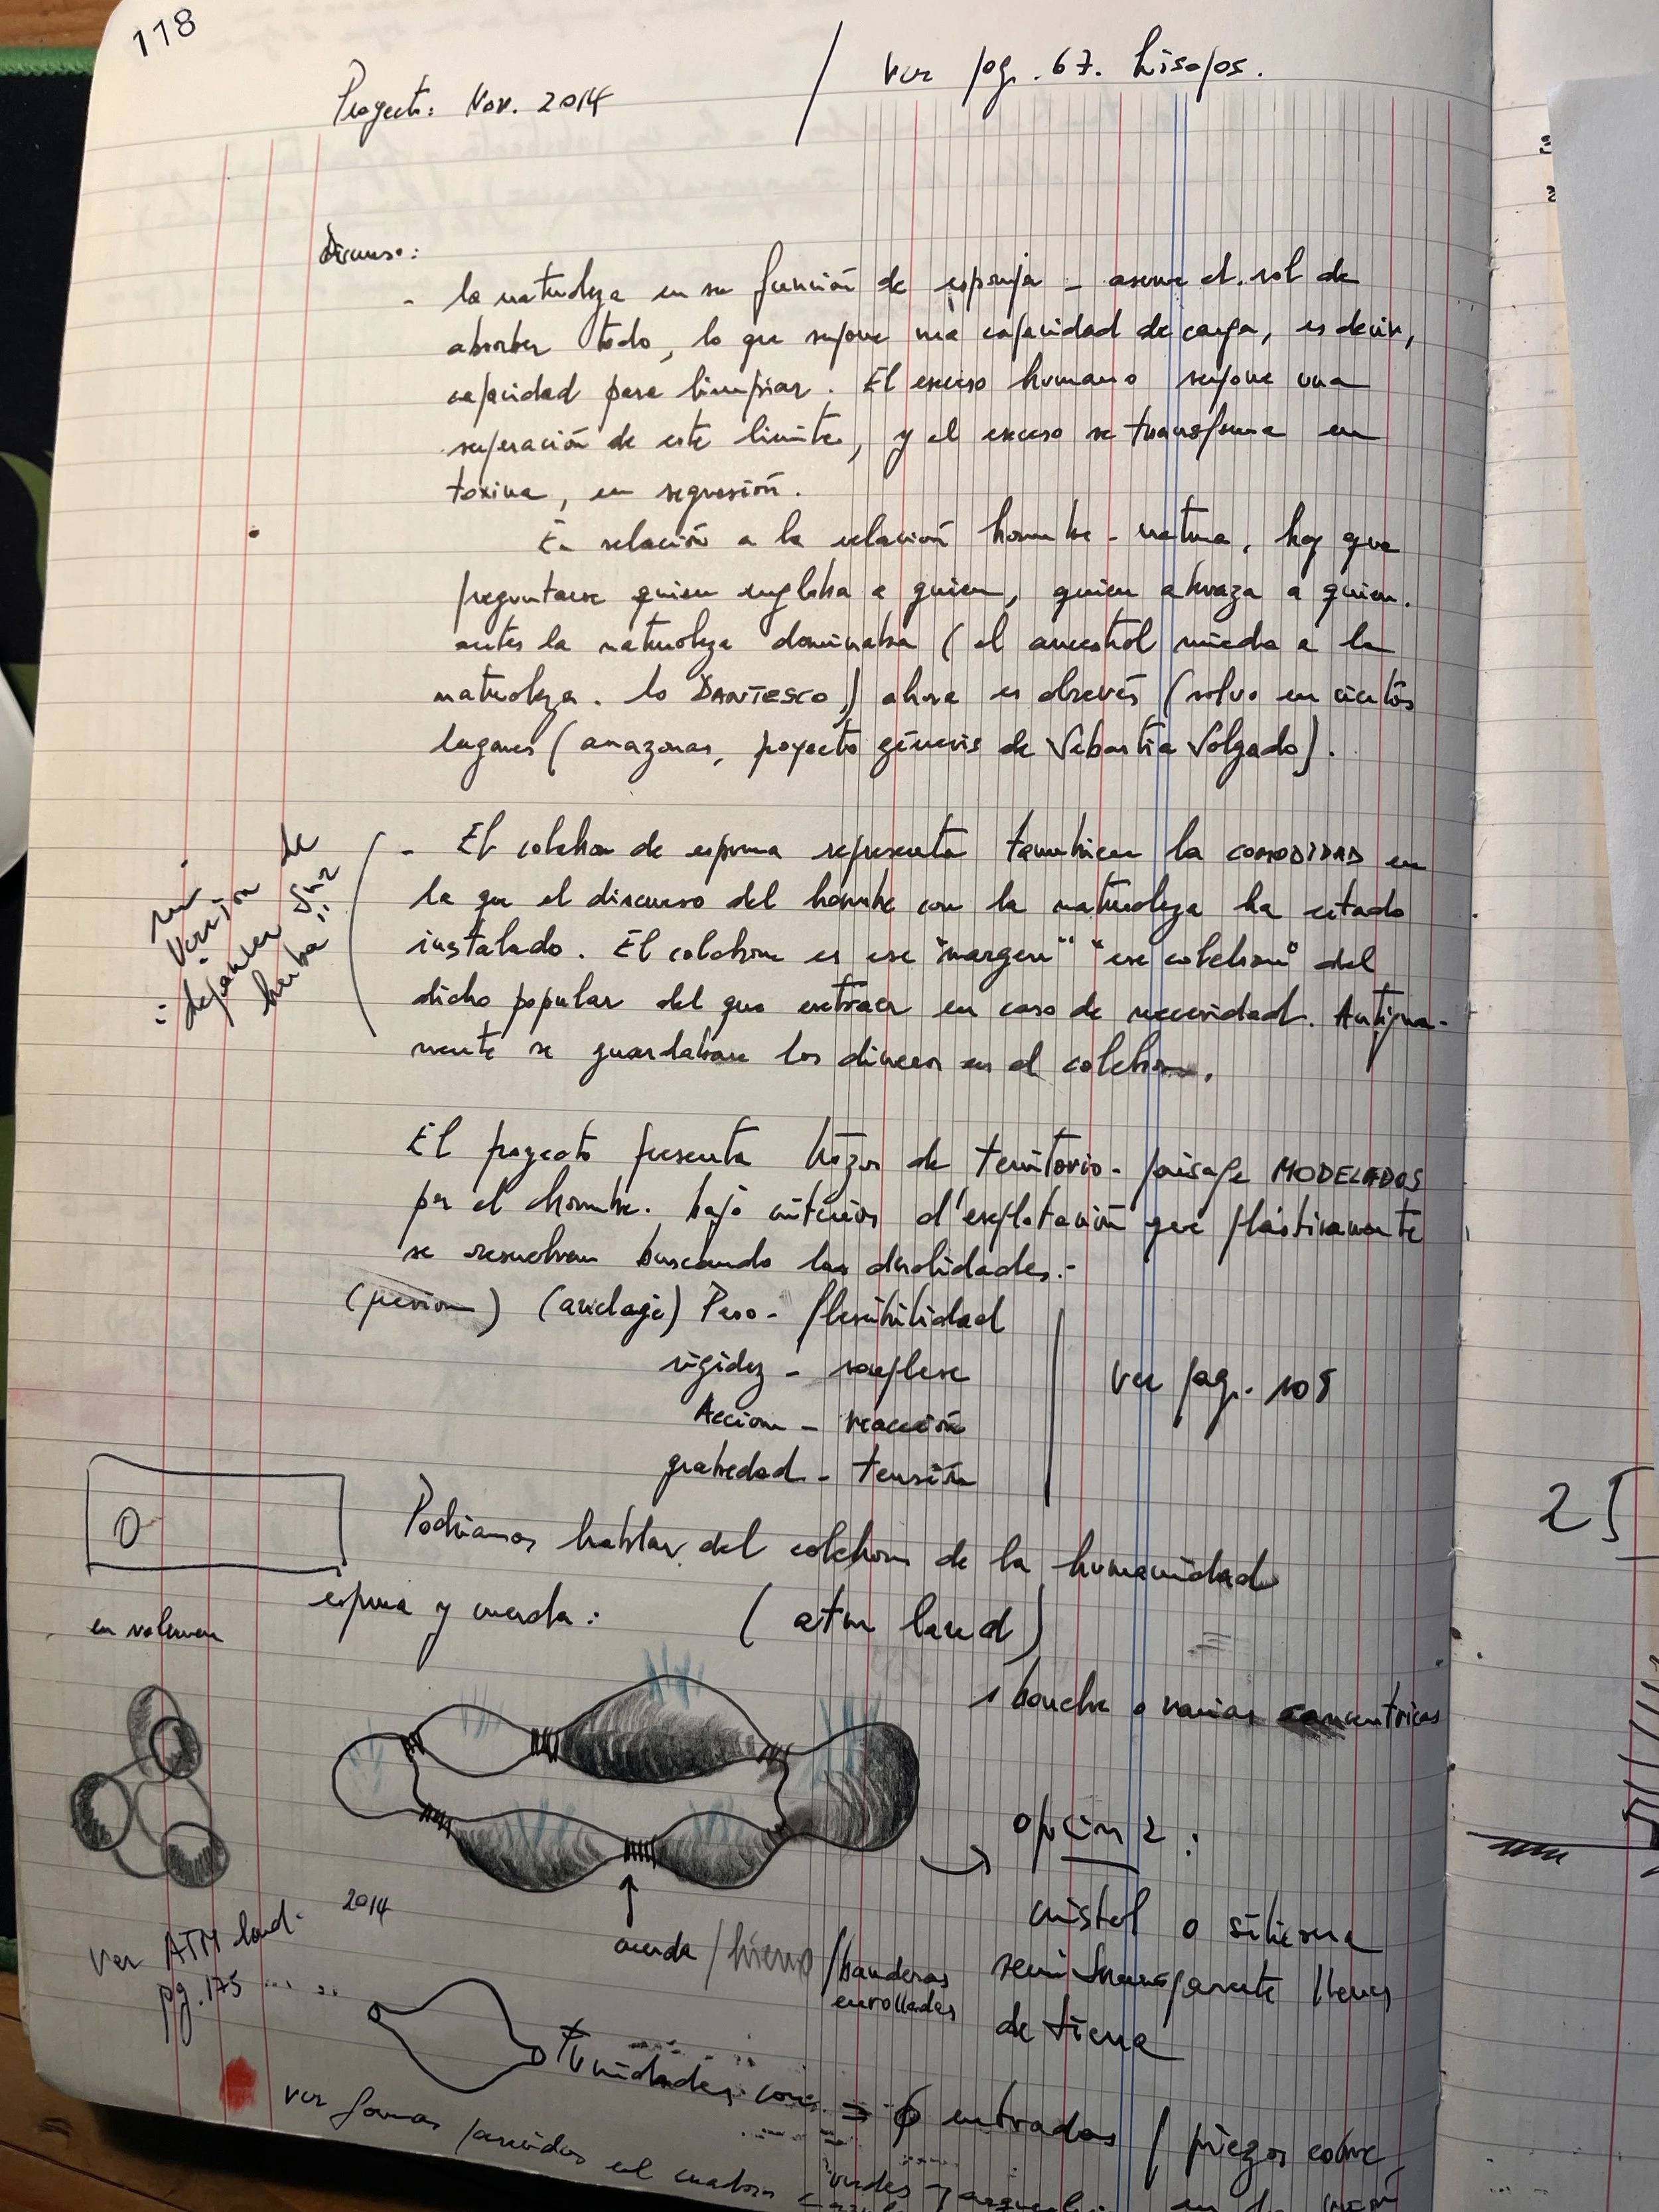 118
Proyecto: Nov. 2014 / Ver pag. 67. hisopos.
Discurso:
- la naturaleza en su función de esponja - asume el rol de
absorber todo, lo que supone una capacidad de carga, es decir,
capacidad para limpiar. El exceso humano supone una
superación de este limite, y el exceso se transforma en
toxina, en regresión.
En relación a la relación hombre - natura, hay que
preguntarse quien engloba a quien, quien abraza a quien.
antes la naturaleza dominaba (el ancestral miedo a la
naturaleza. lo DANTESCO) ahora es alrevés (salvo en ciertos
lugares (amazonas, proyecto génesis de Sebastia Salgado).
- El colchon de espuma representa tambien la COMODIDAD en
la que el discurso del hombre con la naturaleza ha estado
instalado. El colchon es ese "margen" "ese colchon" del
dicho popular del que extraer en caso de necesidad. Antigua-
mente se guardaban los dineros en el colchon.
mi
versión de
"dejeuner sur
herba"
El proyecto presenta trozos de territorio - paisaje MODELADOS
por el hombre. bajo criterios d'explotación que plásticamente
se resuelven buscando las dualidades.-
(presion) (anclaje) Peso - flexibilidad
rigidez - souplese
Accion - reacción
gravedad - tensión
Ver pag. 108
Podriamos hablar del colchon de la humanidad
espuma y cuerda: (atm land)
en volumen
1 bouche o varias concentricas
opcion 2:
cristal o silicona
semitransparente llenas
de tierra
2014
cuerda / hierro / banderas
enrolladas
Ver ATM land.
pg. 175 .....
unidades con = 6 entradas / piezas cobre
ver formas parecidas en el cuaderno